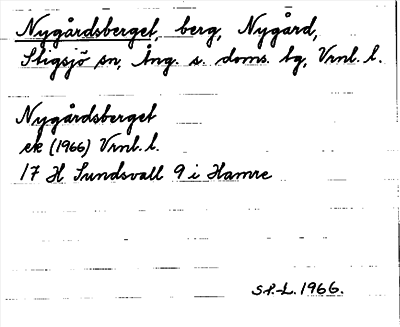 Nygårdsberget, berg, Nygård,
Stigsjö sn, Ång. s. doms. tg, Vrnl. l.
Nygårdsberget
ek (1966) Vrnl. l.
17 H Sundsvall 9 i Hamre
S.P.-L. 1966.